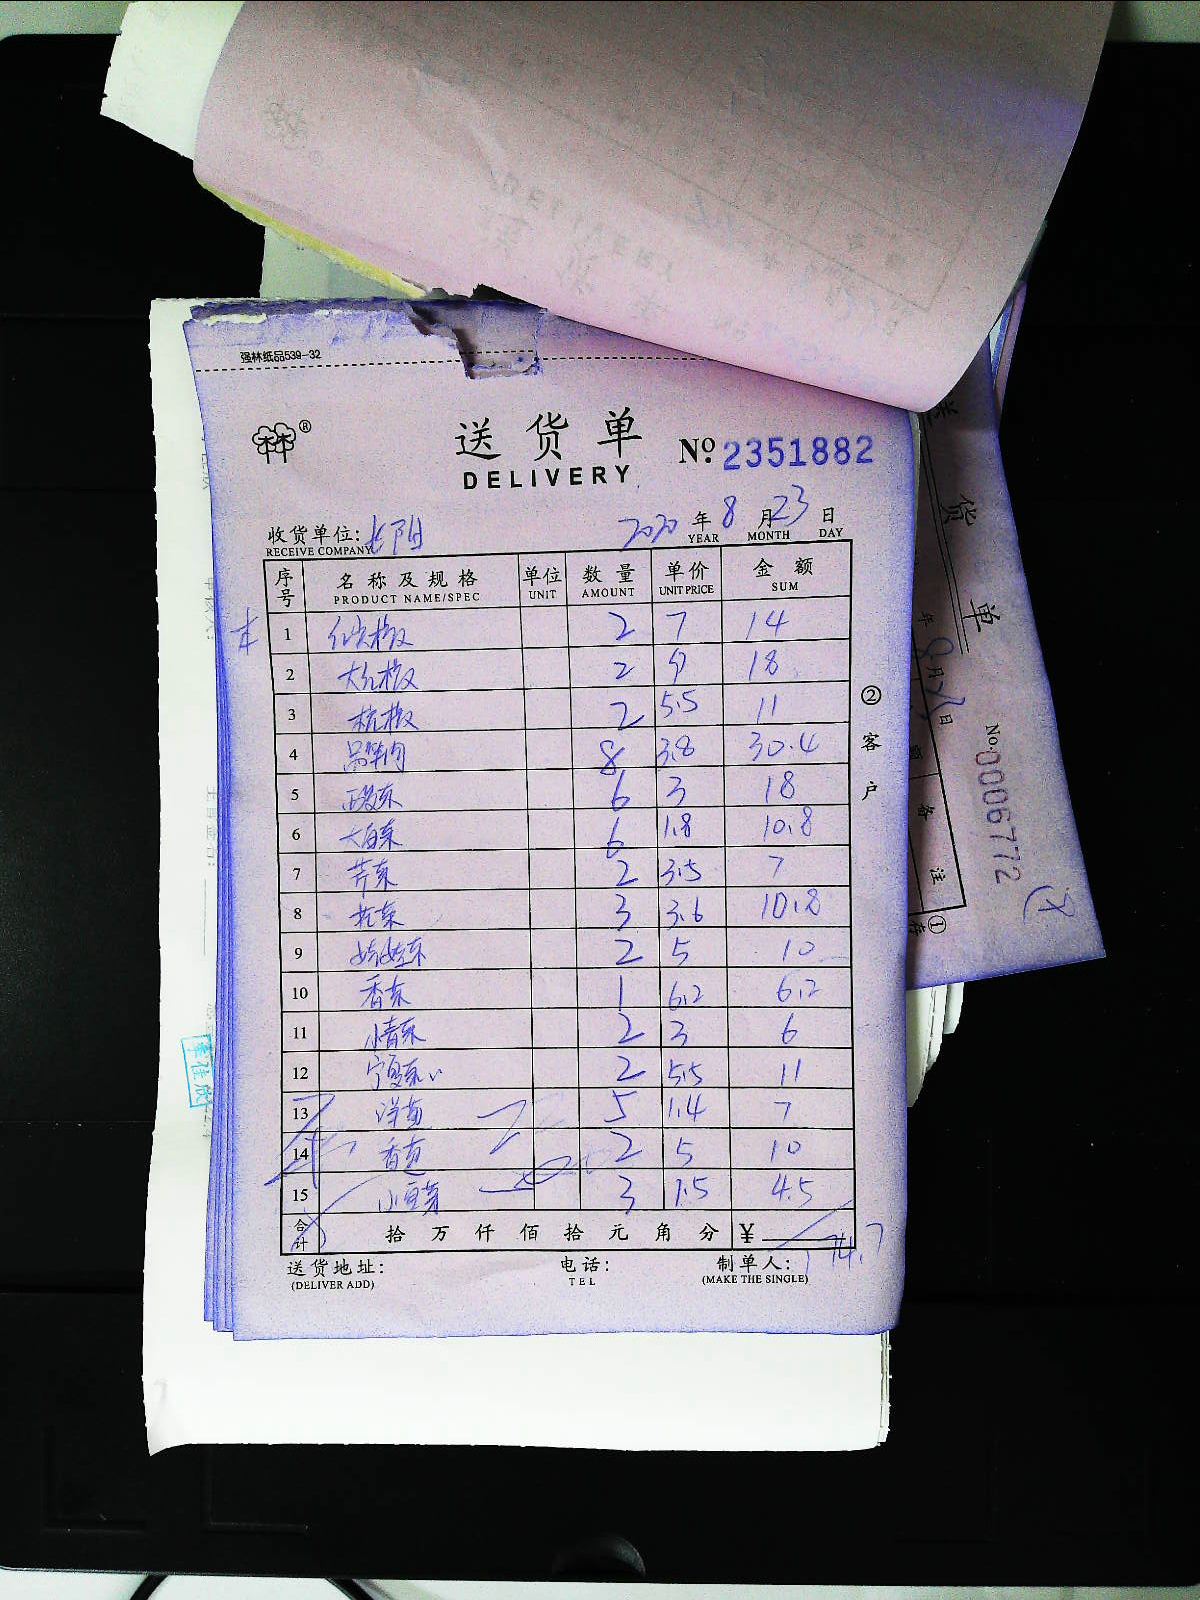 强林纸品539-32
林林®
送货单 Nº 2351882
DELIVERY
收货单位: 2020 年 8 月 23 日
RECEIVE COMPANY YEAR MONTH DAY
序号 名称及规格 单位 数量 单价 金额
PRODUCT NAME/SPEC UNIT AMOUNT UNIT PRICE SUM
1 2 7 14
2 大红椒 2 9 18
3 杭椒 2 5.5 11
4 8 3.8 30.4
5 菠菜 6 3 18
6 大白菜 6 1.8 10.8
7 芹菜 2 3.5 7
8 3 3.6 10.8
9 娃娃菜 2 5 10
10 香菜 1 6.2 6.2
11 小青菜 2 3 6
12 宁夏菜 2 5.5 11
13 洋葱 5 1.4 7
14 香葱 2 5 10
15 小豆芽 3 1.5 4.5
合计 拾 万 仟 佰 拾 元 角 分 ¥ 174.7
送货地址: 电话: 制单人:
(DELIVER ADD) TEL (MAKE THE SINGLE)
②客户
货单
年8月 日
No.0006772
额 备注
①存